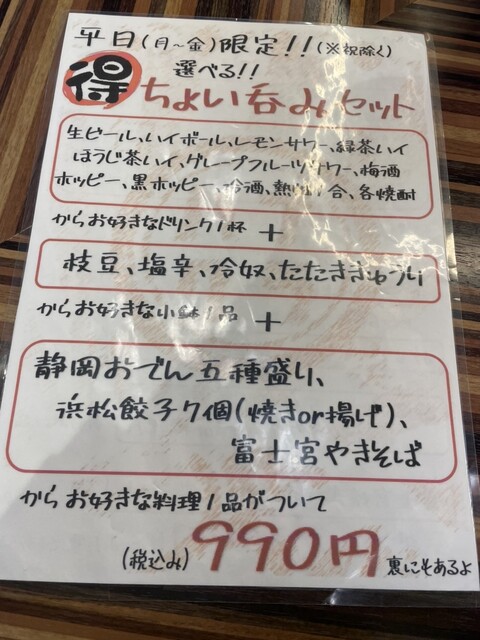 平日(月〜金)限定!!(※祝除く)
選べる!!
得 ちょい呑みセット
生ビール、ハイボール、レモンサワー、緑茶ハイ
ほうじ茶ハイ、グレープフルーツサワー、梅酒
ホッピー、黒ホッピー、冷酒、熱燗1合、各焼酎
からお好きなドリンク1杯 +
枝豆、塩辛、冷奴、たたききゅうり
からお好きな小鉢1品 +
静岡おでん五種盛り、
浜松餃子7個(焼きor揚げ)、
富士宮やきそば
からお好きな料理1品がついて
(税込み) 990円 裏にもあるよ